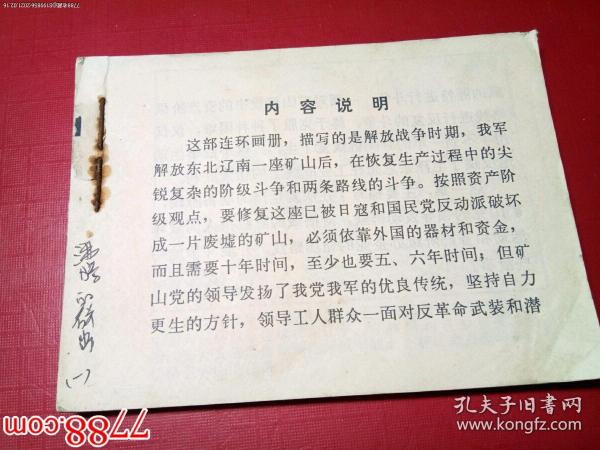 内容说明
这部连环画册，描写的是解放战争时期，我军
解放东北辽南一座矿山后，在恢复生产过程中的尖
锐复杂的阶级斗争和两条路线的斗争。按照资产阶
级观点，要修复这座已被日寇和国民党反动派破坏
成一片废墟的矿山，必须依靠外国的器材和资金，
而且需要十年时间，至少也要五、六年时间；但矿
山党的领导发扬了我党我军的优良传统，坚持自力
更生的方针，领导工人群众一面对反革命武装和潜
(一)
7788.com
孔夫子旧书网